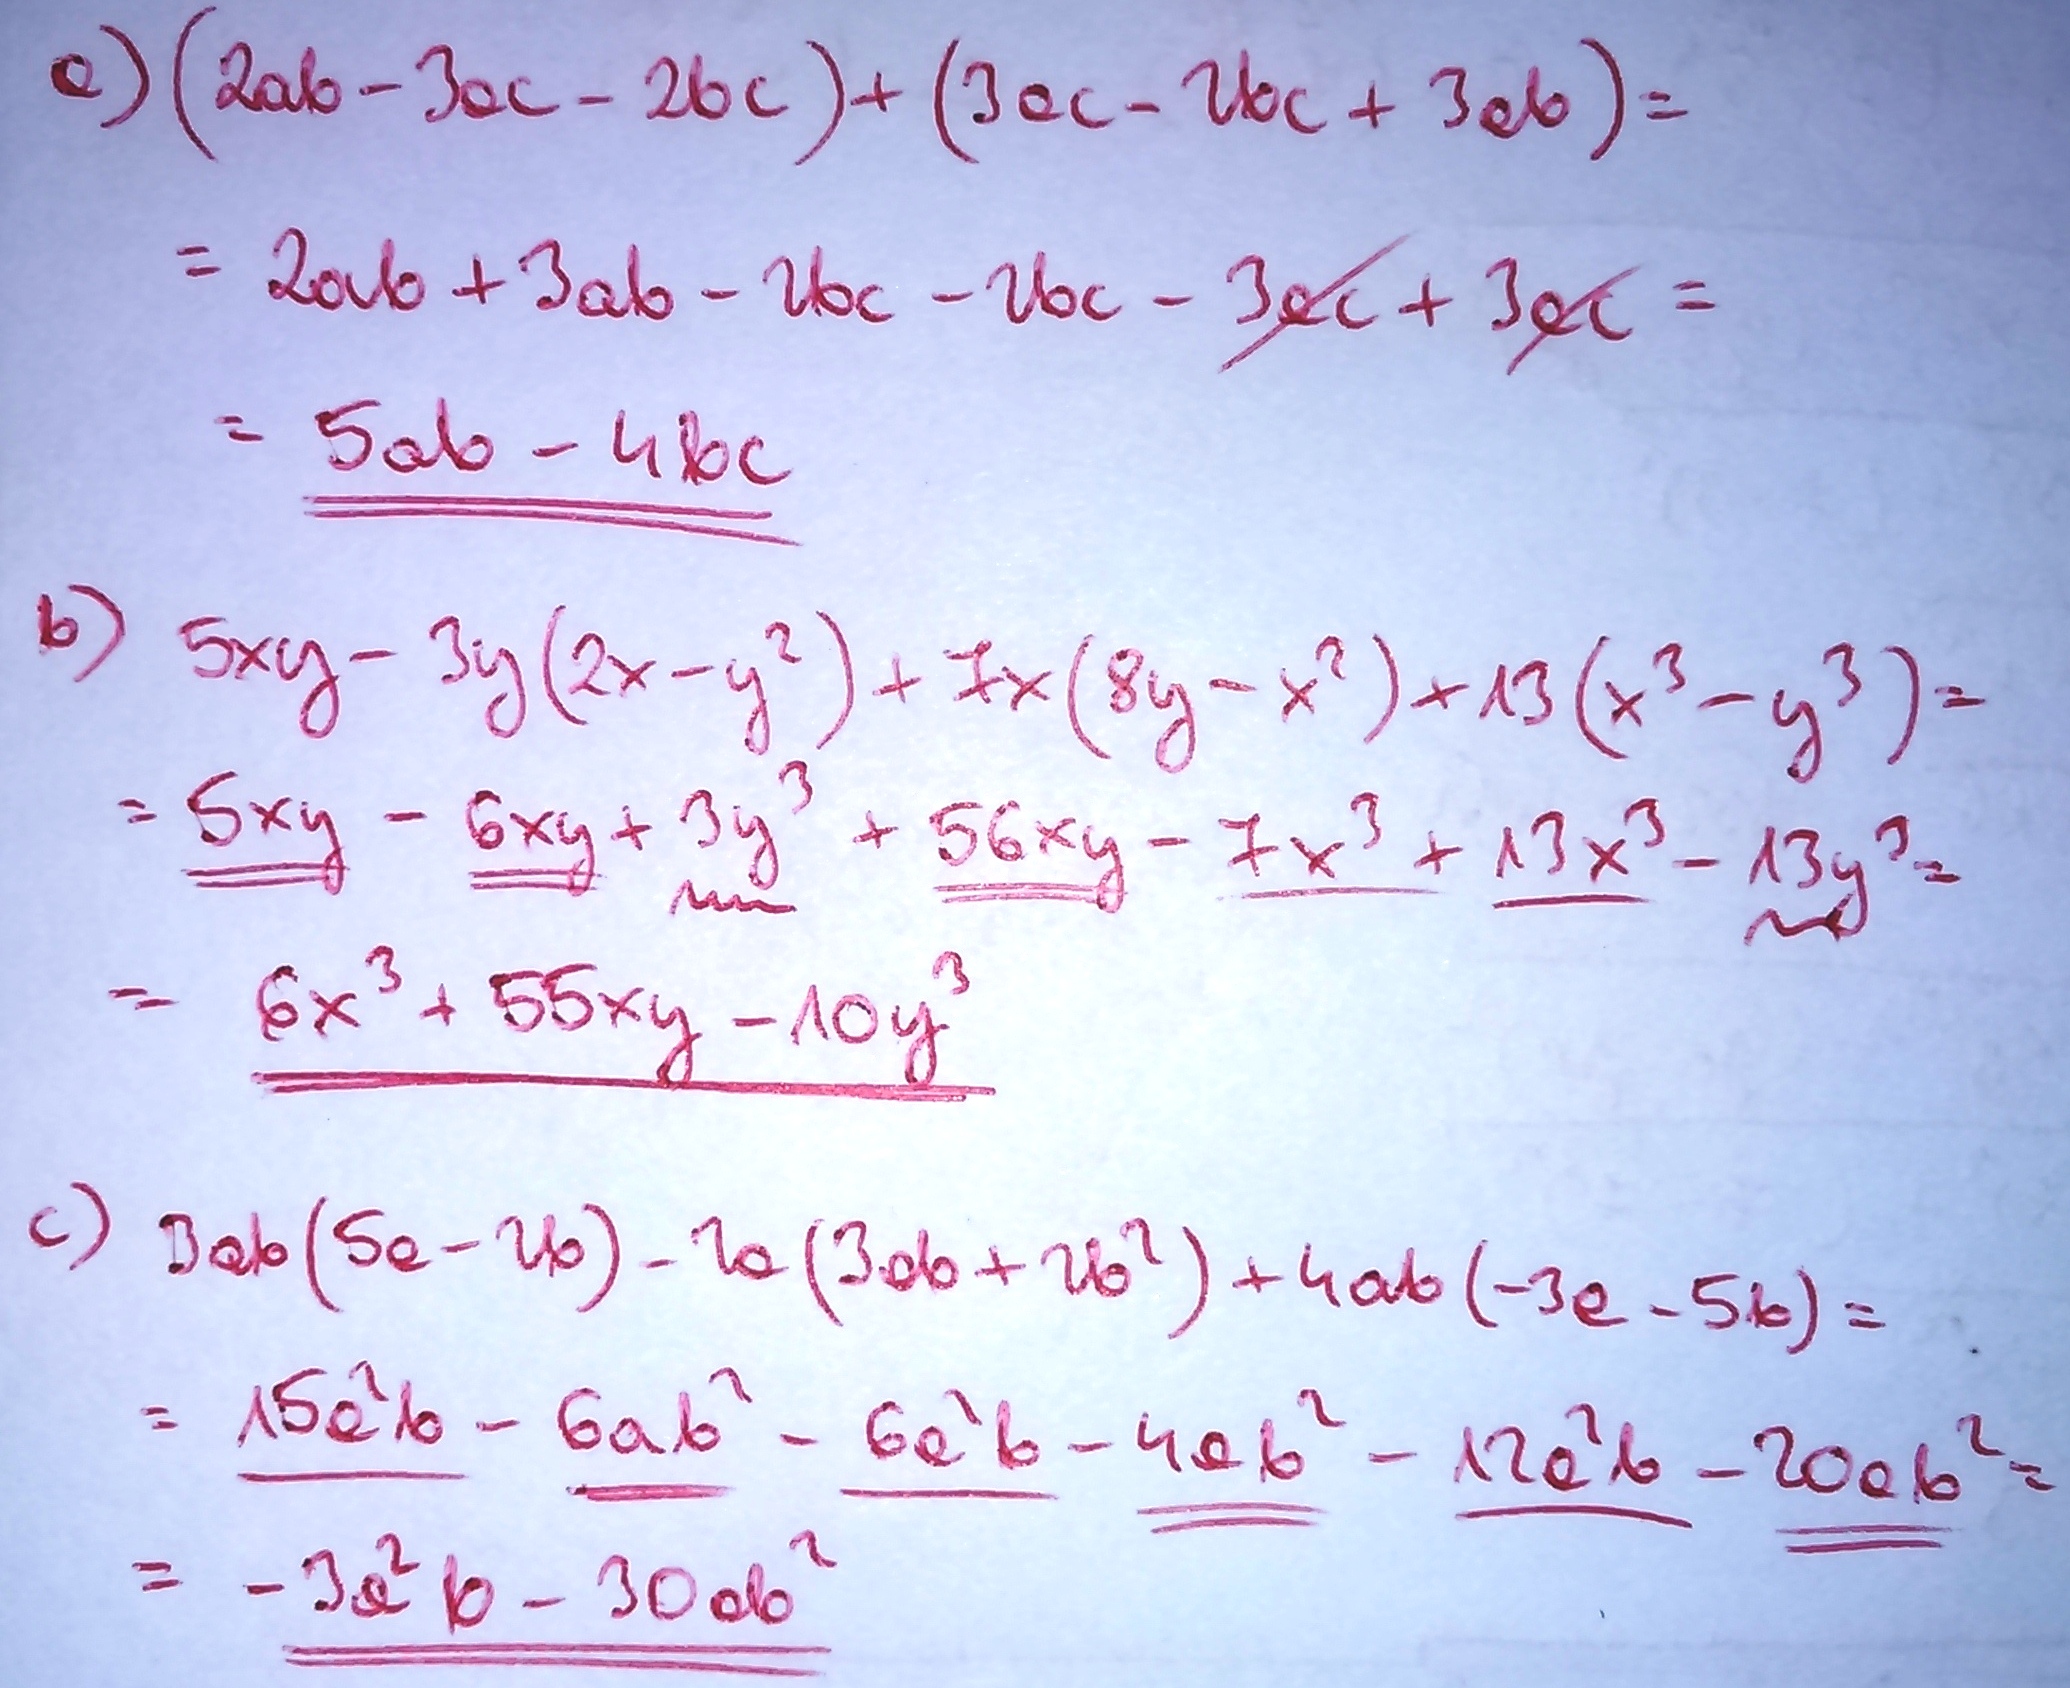 a) (2ab - 3ac - 2bc) + (3ac - 2bc + 3ab) =
= 2ab + 3ab - 2bc - 2bc - 3ac + 3ac =
= 5ab - 4bc
b) 5xy - 3y(2x - y²) + 7x(8y - x²) + 13(x³ - y³) =
= 5xy - 6xy + 3y³ + 56xy - 7x³ + 13x³ - 13y³ =
= 6x³ + 55xy - 10y³
c) 3ab(5a - 2b) - 2a(3ab + 2b²) + 4ab(-3a - 5b) =
= 15a²b - 6ab² - 6a²b - 4ab² - 12a²b - 20ab² =
= -3a²b - 30ab²